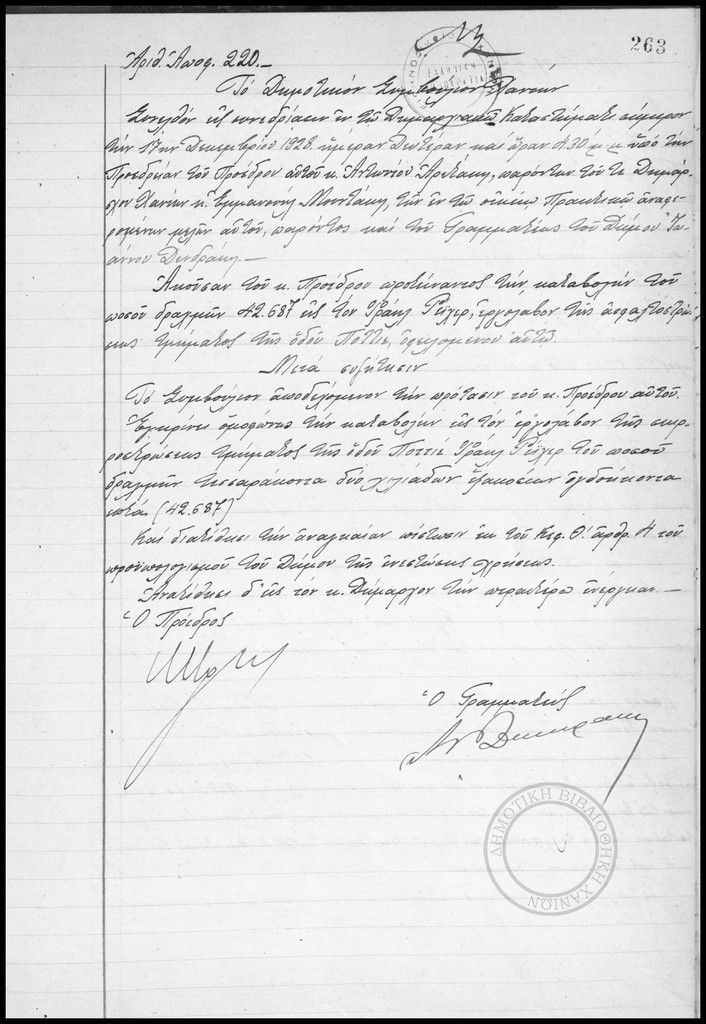 263
Ἀριθ. Ἀποφ. 220.—
Τὸ Δημοτικὸν Συμβούλιον Χανίων
Συνελθὸν εἰς συνεδρίασιν ἐν τῷ Δημαρχιακῷ Καταστήματι σήμερον
τὴν 17ην Δεκεμβρίου 1928 ἡμέραν Δευτέραν καὶ ὥραν 4.30 μ.μ. ὑπὸ τὴν
Προεδρείαν τοῦ Προέδρου αὐτοῦ κ. Ἀντωνίου παρόντων τοῦ τε Δημάρ-
χου Χανίων κ. Ἐμμανουὴλ Μουντάκη, τῶν ἐν τῷ οἰκείῳ Πρακτικῷ ἀναφε-
ρομένων μελῶν αὐτοῦ, παρόντος καὶ τοῦ Γραμματέως τοῦ Δήμου Ἰω-
άννου Δενδράκη.—
Ἀκοῦσαν τοῦ κ. Προέδρου προτείναντος τὴν καταβολὴν τοῦ
ποσοῦ δραχμῶν 42.687 εἰς τὸν Φρὰνκ ἐργολάβον τῆς ἀσφαλτοστρώ-
σεως τμήματος τῆς ὁδοῦ Ποττιέ, ὀφειλομένου αὐτῷ.
Μετὰ συζήτησιν
Τὸ Συμβούλιον ἀποδεχόμενον τὴν πρότασιν τοῦ κ. Προέδρου αὐτοῦ.
Ἐγκρίνει ὁμοφώνως τὴν καταβολὴν εἰς τὸν ἐργολάβον τῆς σκυρ-
ροστρώσεως τμήματος τῆς ὁδοῦ Ποττιέ Φρὰνκ τοῦ ποσοῦ
δραχμῶν τεσσαράκοντα δύο χιλιάδων ἑξακοσίων ὀγδοήκοντα
ἑπτά (42.687)
Καὶ διαθέτει τὴν ἀναγκαίαν πίστωσιν ἐκ τοῦ Κεφ. Θ' ἄρθρ. 4 τοῦ
προϋπολογισμοῦ τοῦ Δήμου τῆς ἐνεστώσης χρήσεως.
Ἀναθέτει δ' εἰς τὸν κ. Δήμαρχον τὴν περαιτέρω ἐνέργειαν.—
Ὁ Πρόεδρος
Ὁ Γραμματεὺς
ΔΗΜΟΤΙΚΗ ΒΙΒΛΙΟΘΗΚΗ ΧΑΝΙΩΝ